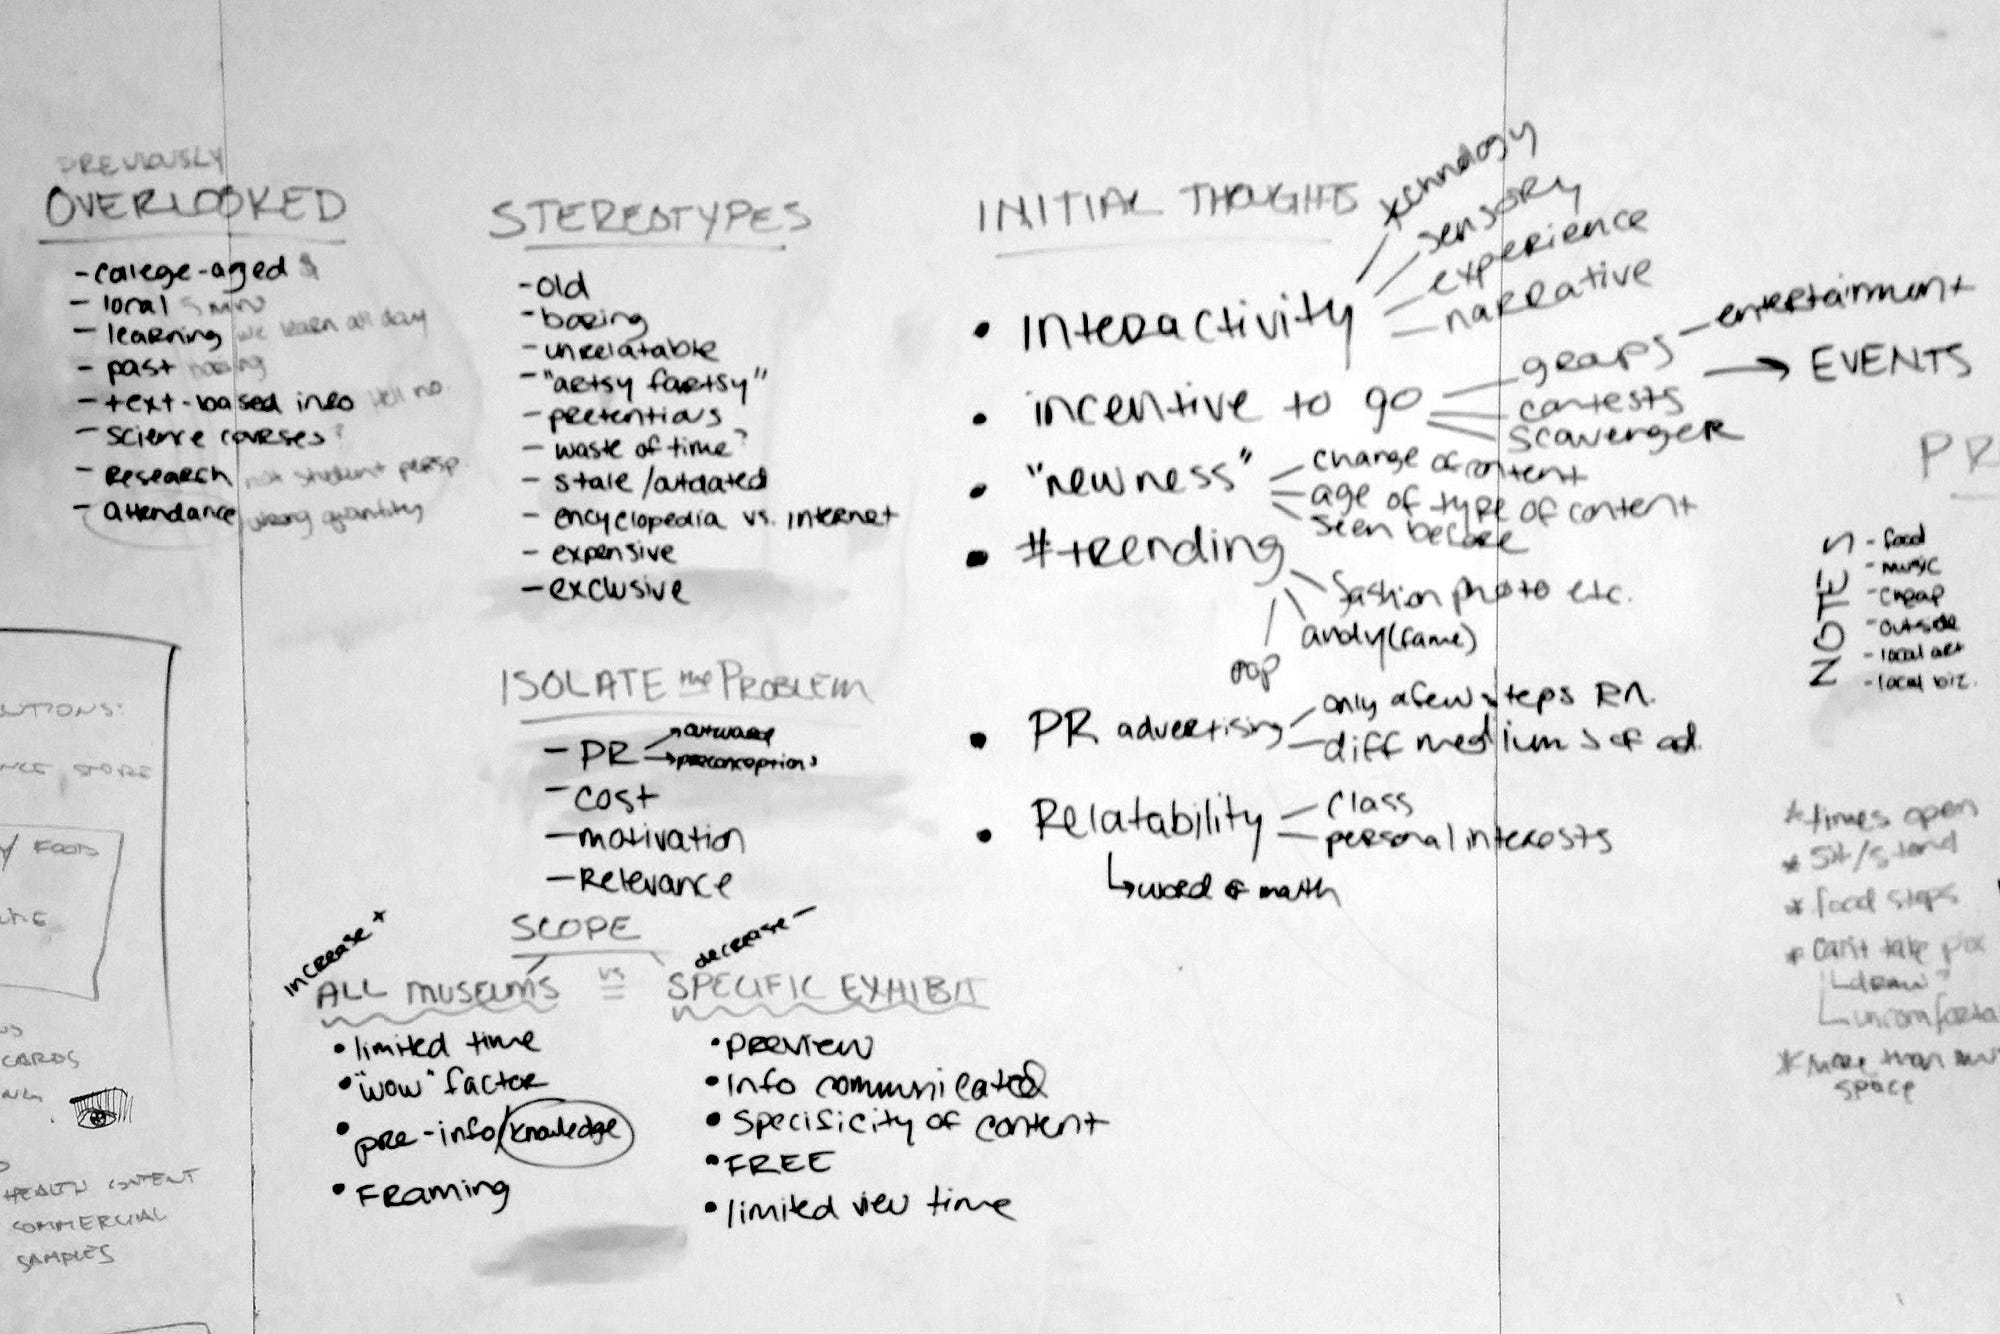 PREVIOUSLY
OVERLOOKED
- college-aged $
- local
- learning we learn all day
- past boring
- text-based info hell no.
- science courses?
- Research not student persp.
- attendance wrong quantity
STEREOTYPES
- old
- boring
- unrelatable
- "artsy fartsy"
- pretentious
- waste of time?
- stale/outdated
- encyclopedia vs. internet
- expensive
- exclusive
ISOLATE the PROBLEM
- PR → outward
→ preconceptions
- cost
- motivation
- Relevance
SCOPE
increase +
ALL MUSEUMS
• limited time
• "wow" factor
• pre-info/knowledge
• Framing
vs
decrease -
SPECIFIC EXHIBIT
• preview
• info communicated
• specificity of content
• FREE
• limited view time
INITIAL THOUGHTS
• interactivity
technology
sensory
experience
narrative
• incentive to go
groups - entertainment
→ EVENTS
contests
scavenger
• "newness"
change of content
age of type of content
seen before
• #trending
fashion photo etc.
andy (fame)
pop
• PR advertising
only a few steps RN.
diff mediums of ad.
• Relatability
class
personal interests
↳ word of mouth
PR
NOTES
- food
- music
- cheap
- outside
- local art
- local biz.
* times open
* sit/stand
* food stops
* can't take pix
draw?
* more than
space
STORE
FOOD
CARDS
HEALTH CONTENT
COMMERCIAL
SAMPLES